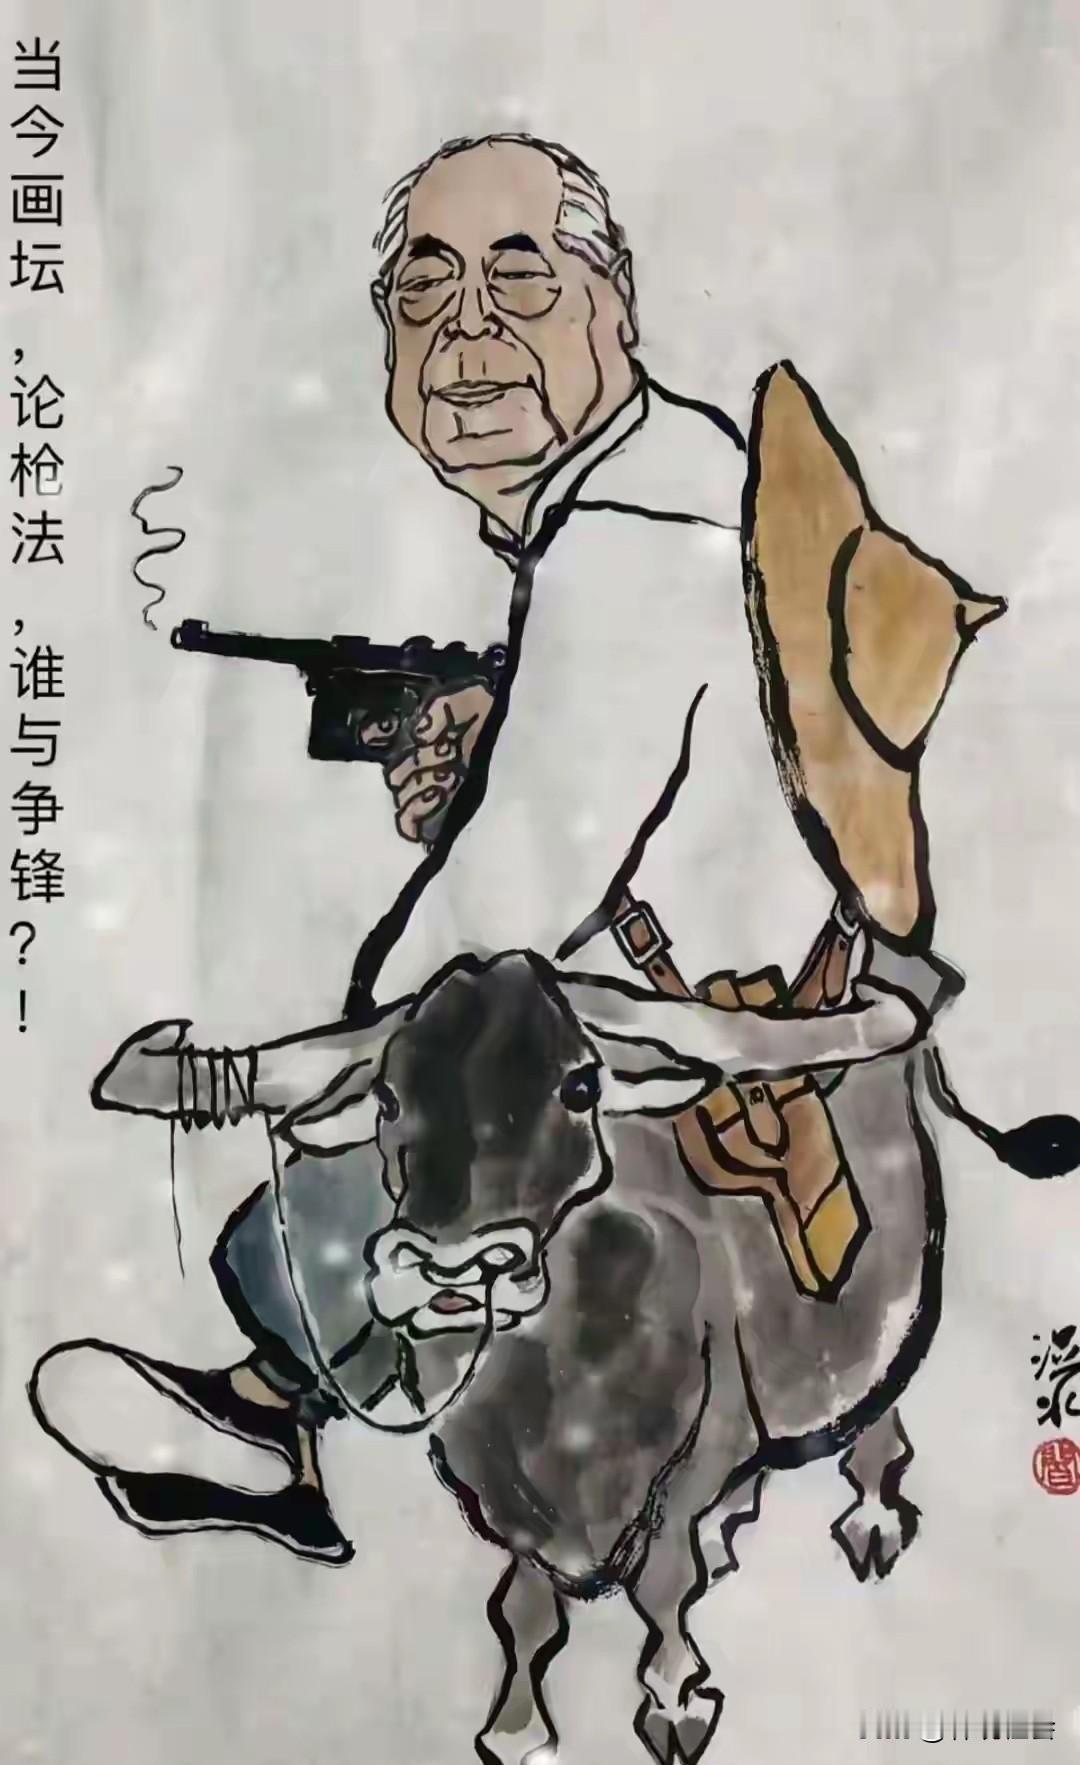 当今画坛,论枪法,谁与争锋?!